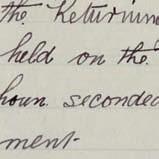 the Returning
held on the
houn seconded
ment.